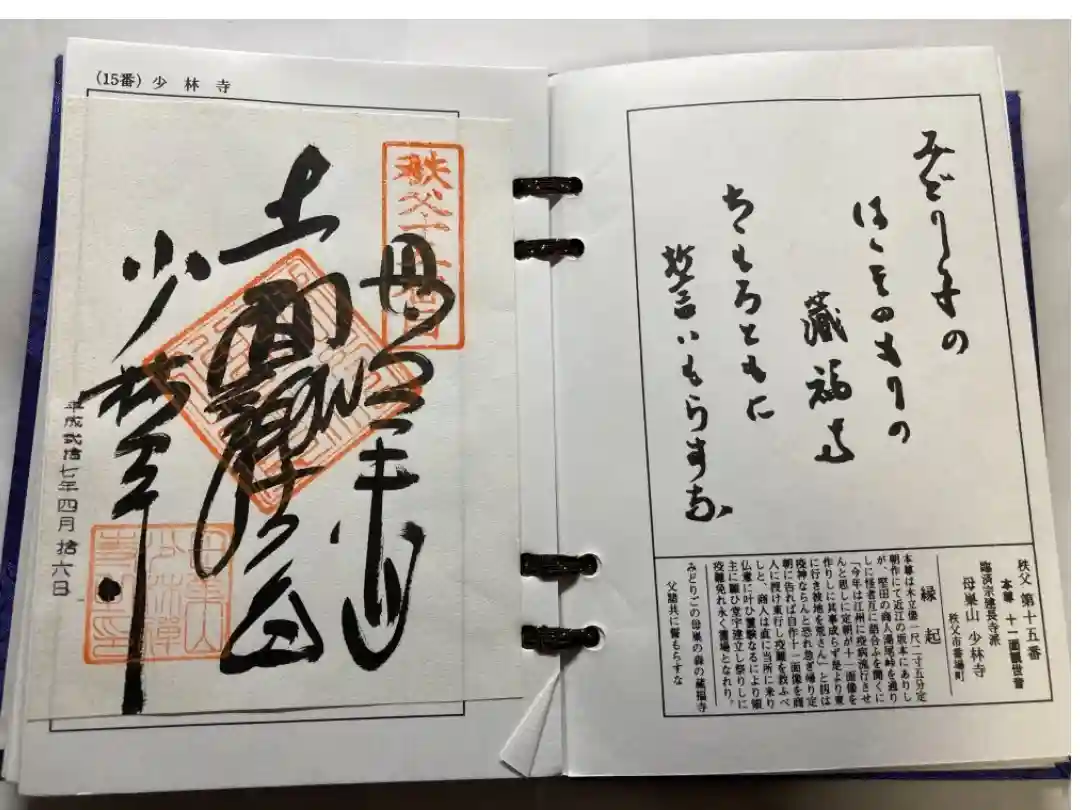 (15番) 少林寺
少林寺
平成弐拾七年四月拾六日
みどり子の
はゝそのもりの
蔵福寺
ちゝもろともに
誓いもらすな
秩父 第十五番
臨済宗建長寺派
本尊 十一面観世音
母巣山 少林寺
秩父市番場町
縁起
本尊は木立像一尺二寸五分定
朝作にて近江の坂本にありし
が、堅田の商人湯尾峠を通り
しに怪者互に語合ふを聞くに
「今年は江州に疫病流行させ
んと思しに定朝が十一面像を
作りしに其事成らず是より東
に行き彼地を荒さん」と因は
疫神ならんと恐れ急ぎ帰り定
朝に告れば自作十一面像を商
人に授け東行し疫難を救ふべ
しと、商人は直に当所に来り
仏意に叶ひ霊験なるにより領
主に願ひ堂宇建立し祭りしに
疫難免れ永く霊場となれり。
みどりごの母巣の森の蔵福寺
父諸共に誓もらすな